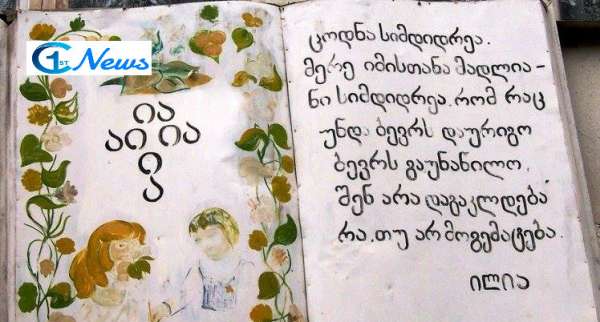 G1ST News
ია
აი ია
ი
ა
ცოდნა სიმდიდრეა.
მერე იმისთანა მადლია-
ნი სიმდიდრეა. რომ რაც
უნდა ბევრს დაურიგო
ბევრს გაუნაწილო,
შენ არა დაგაკლდება
რა. თუ არ მოგემატება.
ილია